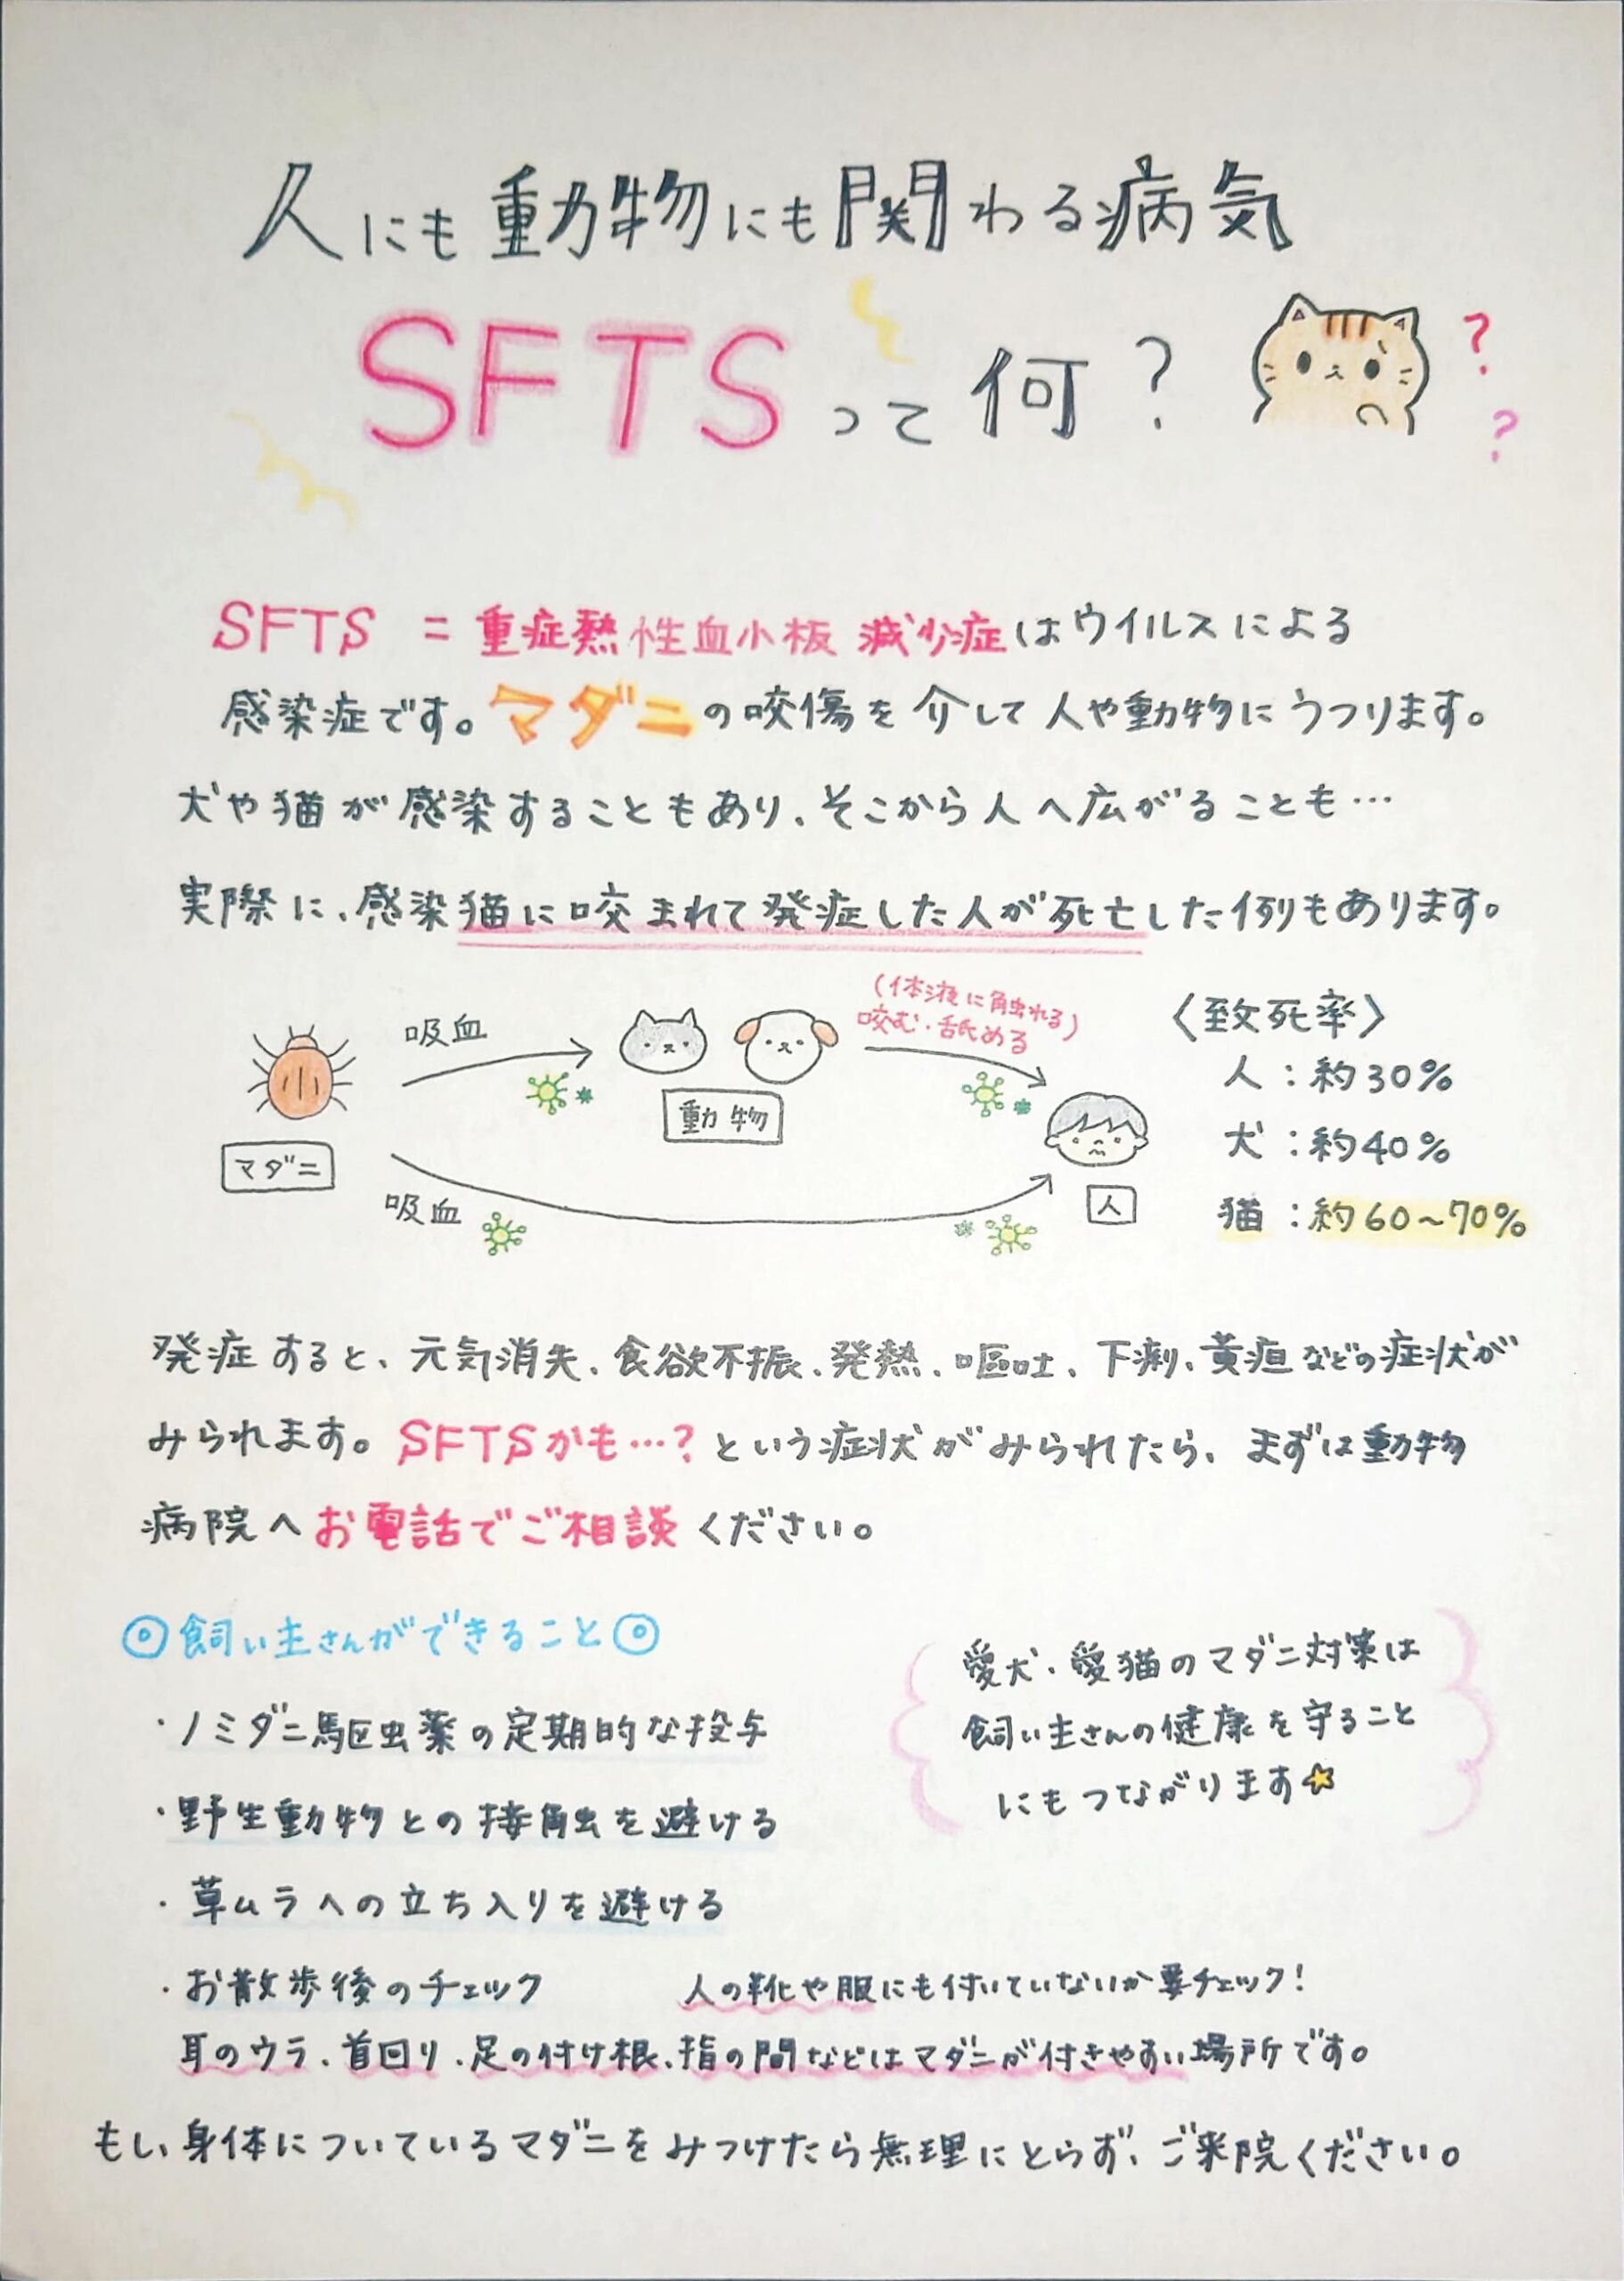 人にも動物にも関わる病気
SFTSって何?
? ?
SFTS = 重症熱性血小板減少症はウイルスによる
感染症です。マダニの咬傷を介して人や動物にうつります。
犬や猫が感染することもあり、そこから人へ広がることも…
実際に、感染猫に咬まれて発症した人が死亡した例もあります。
吸血
(体液に触れる)
咬む・舐める
動物
マダニ
吸血
人
〈致死率〉
人:約30%
犬:約40%
猫:約60~70%
発症すると、元気消失、食欲不振、発熱、嘔吐、下痢、黄疸などの症状が
みられます。SFTSかも…?という症状がみられたら、まずは動物
病院へお電話でご相談ください。
◎飼い主さんができること◎
・ノミダニ駆虫薬の定期的な投与
・野生動物との接触を避ける
・草ムラへの立ち入りを避ける
・お散歩後のチェック 人の靴や服にも付いていないか要チェック!
耳のウラ、首回り、足の付け根、指の間などはマダニが付きやすい場所です。
愛犬・愛猫のマダニ対策は
飼い主さんの健康を守ること
にもつながります☆
もし、身体についているマダニをみつけたら無理にとらず、ご来院ください。